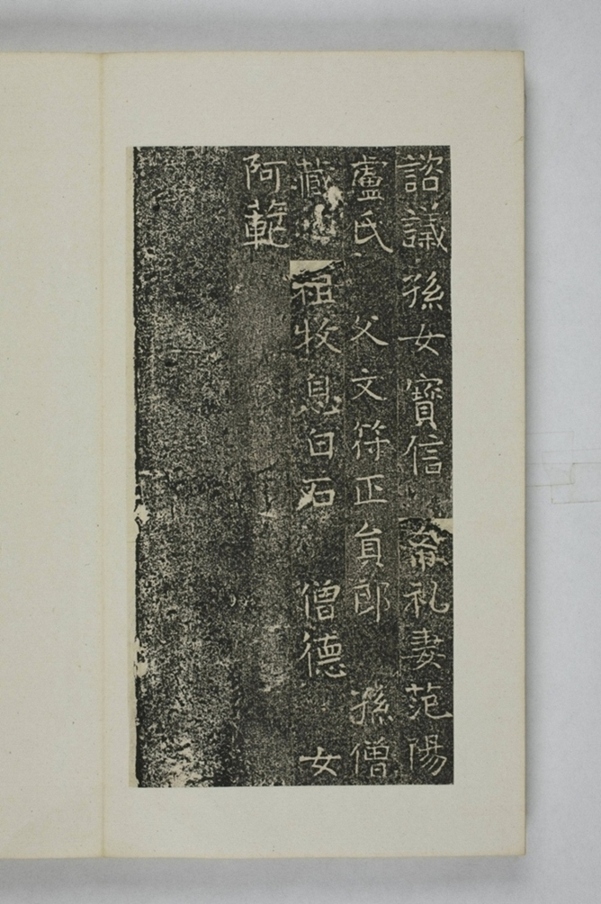 諮議孫女寶信 帝礼妻范陽
盧氏 父文符正員郎 孫僧
藏 祖牧息白石 僧德 女
阿範